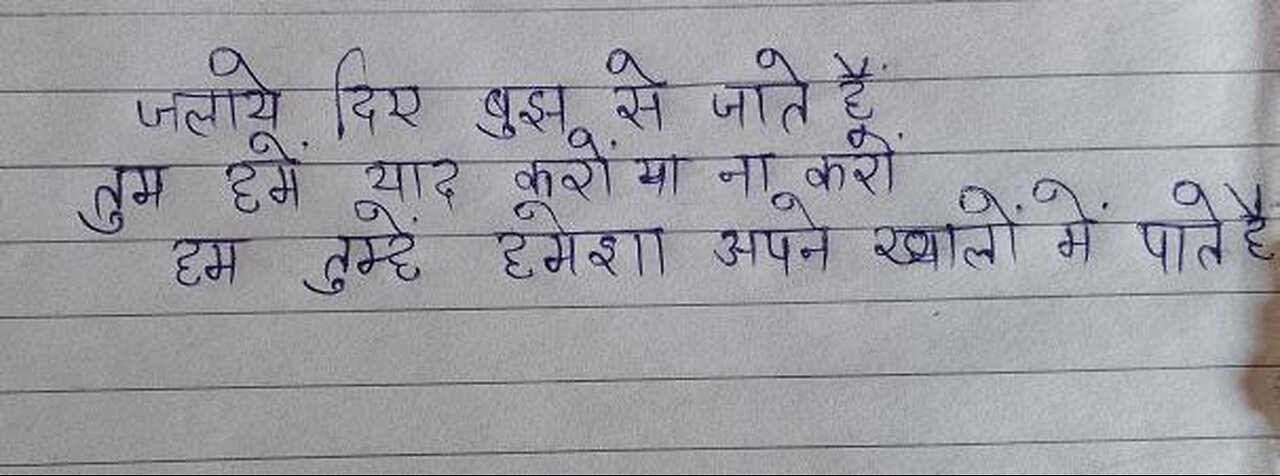 जलाये दिए बुझ से जाते हैं
तुम हमें याद करों या ना करों
हम तुम्हें हमेशा अपने ख्यालों में पाते है